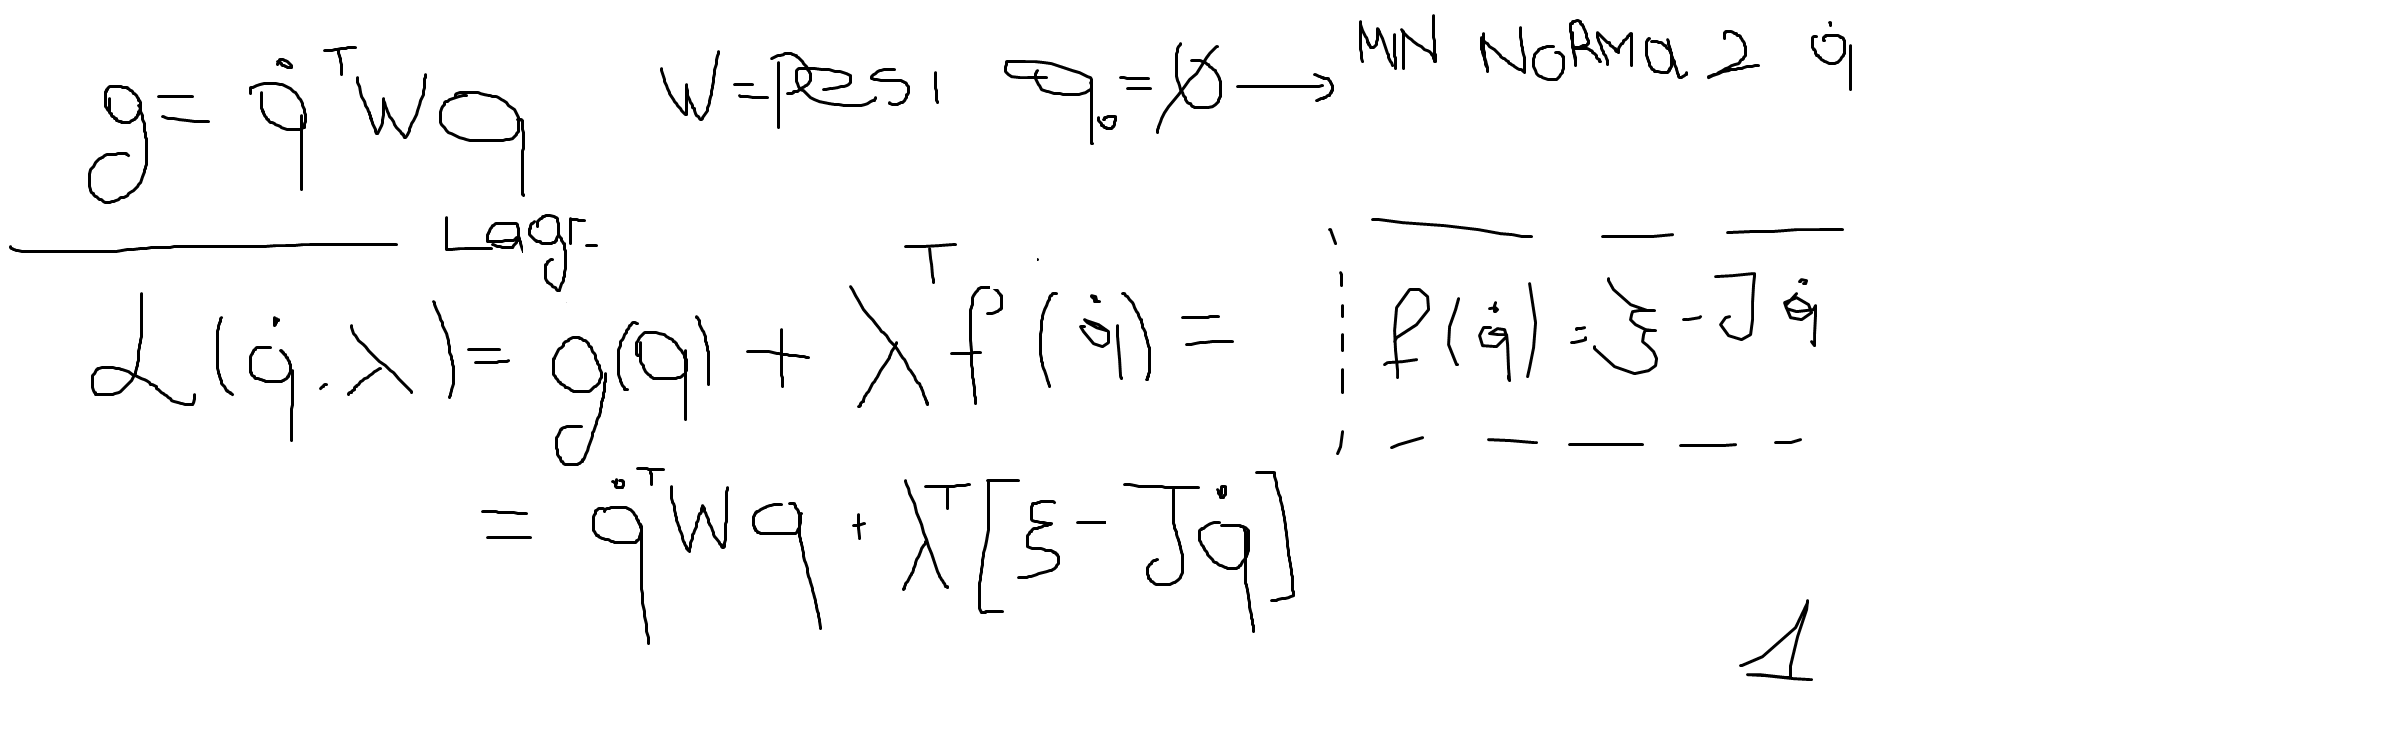 g = q̇ᵀWq W = PESI q₀ = 0̸ → MIN NORMA 2 q̇
Lagr.
ℒ(q̇, λ) = g(q) + λᵀf(q̇) =
f(q̇) = ξ - Jq̇
= q̇ᵀWq + λᵀ[ξ - Jq̇]
1